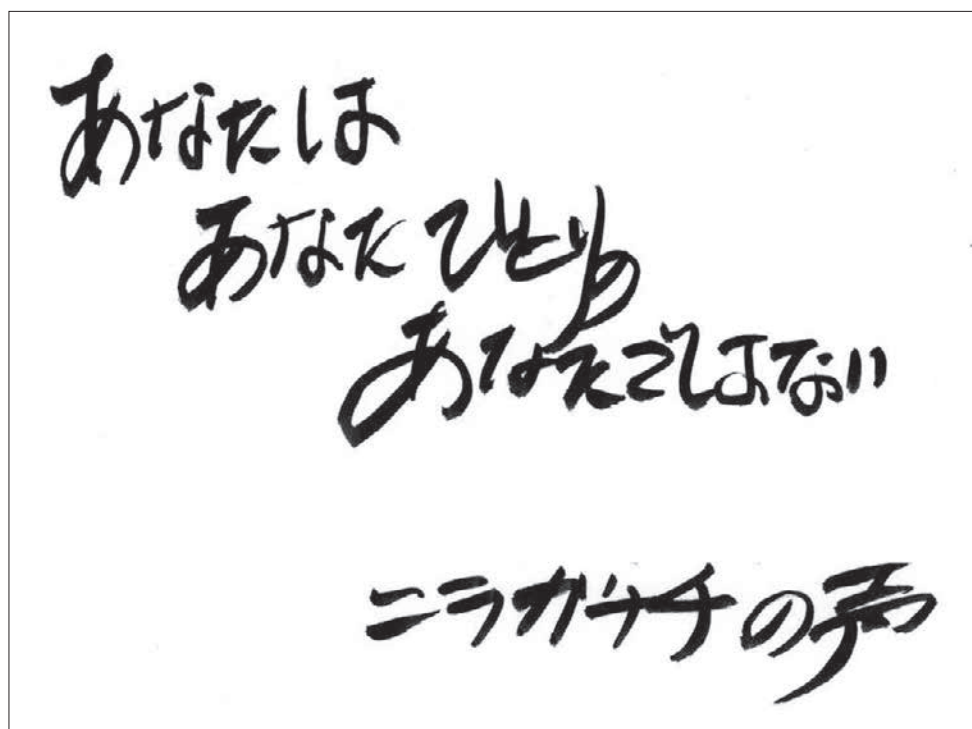 あなたは
あなたひとりの
あなたではない
ニラガサチの声